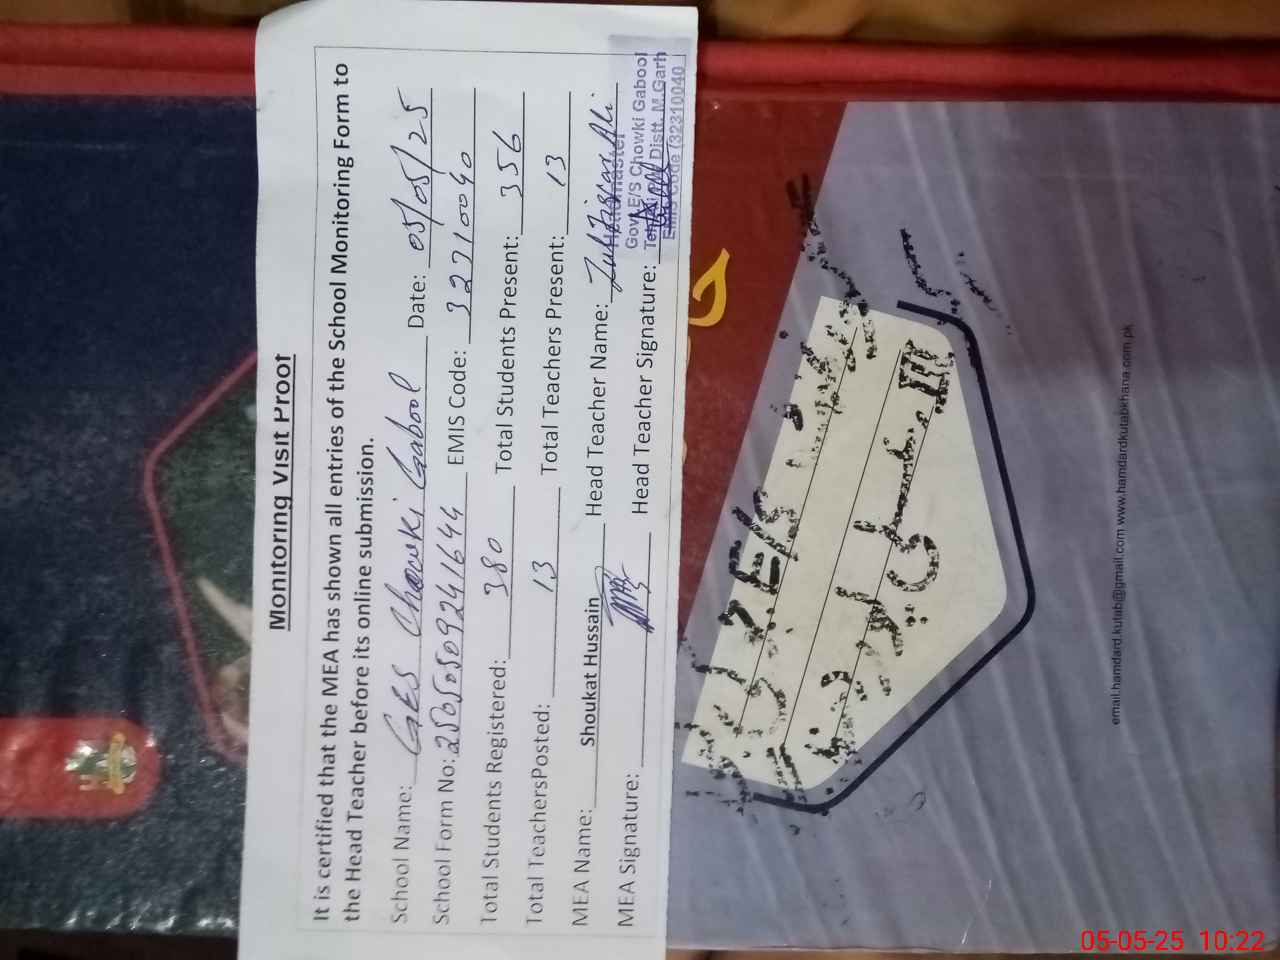 Monitoring Visit Proof
It is certified that the MEA has shown all entries of the School Monitoring Form to
the Head Teacher before its online submission.
School Name: GES Chowki Gabool Date: 05/05/25
School Form No: 2505050924 1644 EMIS Code: 32310040
Total Students Registered: 380 Total Students Present: 356
Total TeachersPosted: 13 Total Teachers Present: 13
MEA Name: Shoukat Hussain Head Teacher Name: Zulfiqar Ali
MEA Signature: Head Teacher Signature:
Headmaster
Govt. E/S Chowki Gabool
Distt. M.Garh
EMIS Code (32310040
email.hamdard.kutab@gmail.com www.hamdardkutabkhana.com.pk
05-05-25 10:22